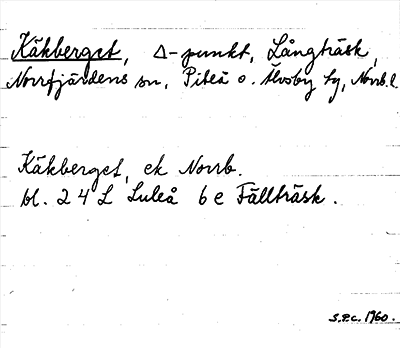 Käkberget, Δ-punkt, Långträsk,
Norrfjärdens sn, Piteå o. Älvsby tg, Norrb.l.
Käkberget, ek Norrb.
bl. 24 L Luleå 6 e Fällträsk.
S.P.C. 1960.